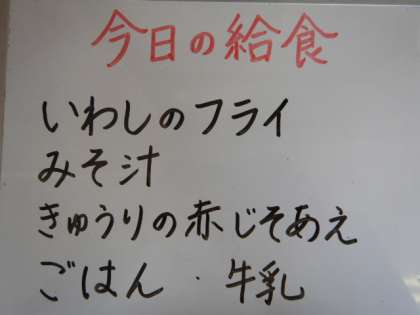 今日の給食
いわしのフライ
みそ汁
きゅうりの赤じそあえ
ごはん・牛乳